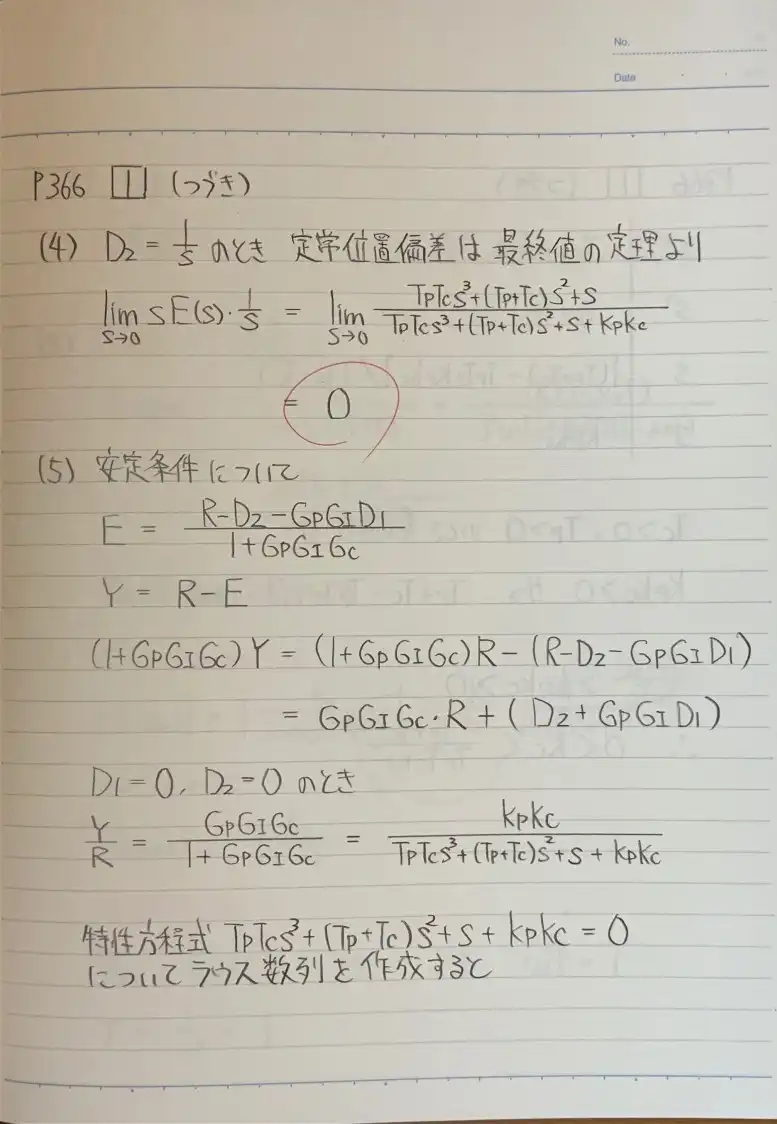 No.
Date
P366 1 (つづき)
(4) D₂ = 1/s のとき 定常位置偏差は 最終値の定理より
lim s→0 sE(s)・1/s = lim s→0 (TpTcs³+(Tp+Tc)s²+s)/(TpTcs³+(Tp+Tc)s²+s+KpKc)
= 0
(5) 安定条件について
E = (R-D₂-GpGID₁)/(1+GpGIGc)
Y = R-E
(1+GpGIGc)Y = (1+GpGIGc)R-(R-D₂-GpGID₁)
= GpGIGc・R+(D₂+GpGID₁)
D₁=0, D₂=0 のとき
Y/R = GpGIGc/(1+GpGIGc) = KpKc/(TpTcs³+(Tp+Tc)s²+s+KpKc)
特性方程式 TpTcs³+(Tp+Tc)s²+s+KpKc=0
についてラウス数列を作成すると